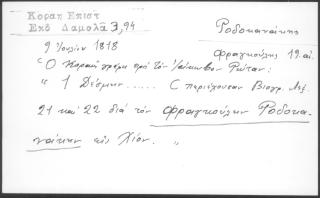 Κοραη Επιστ
Εκδ Δαμαλᾶ 3,94
Ροδοκανάκης
Φραγκούλης 19. αἰ.
9 Ἰουλίου 1818
Ὁ Κοραῆ γράφει πρὸ τὸν Ἰάκωβον Ρώταν:
" 1 Δέσμην..... C περιέχουσαν Βιογρ. Λεξ.
21 καὶ 22 διὰ τὸν Φραγκούλην Ροδοκα-
νάκην εἰς Χίον. "